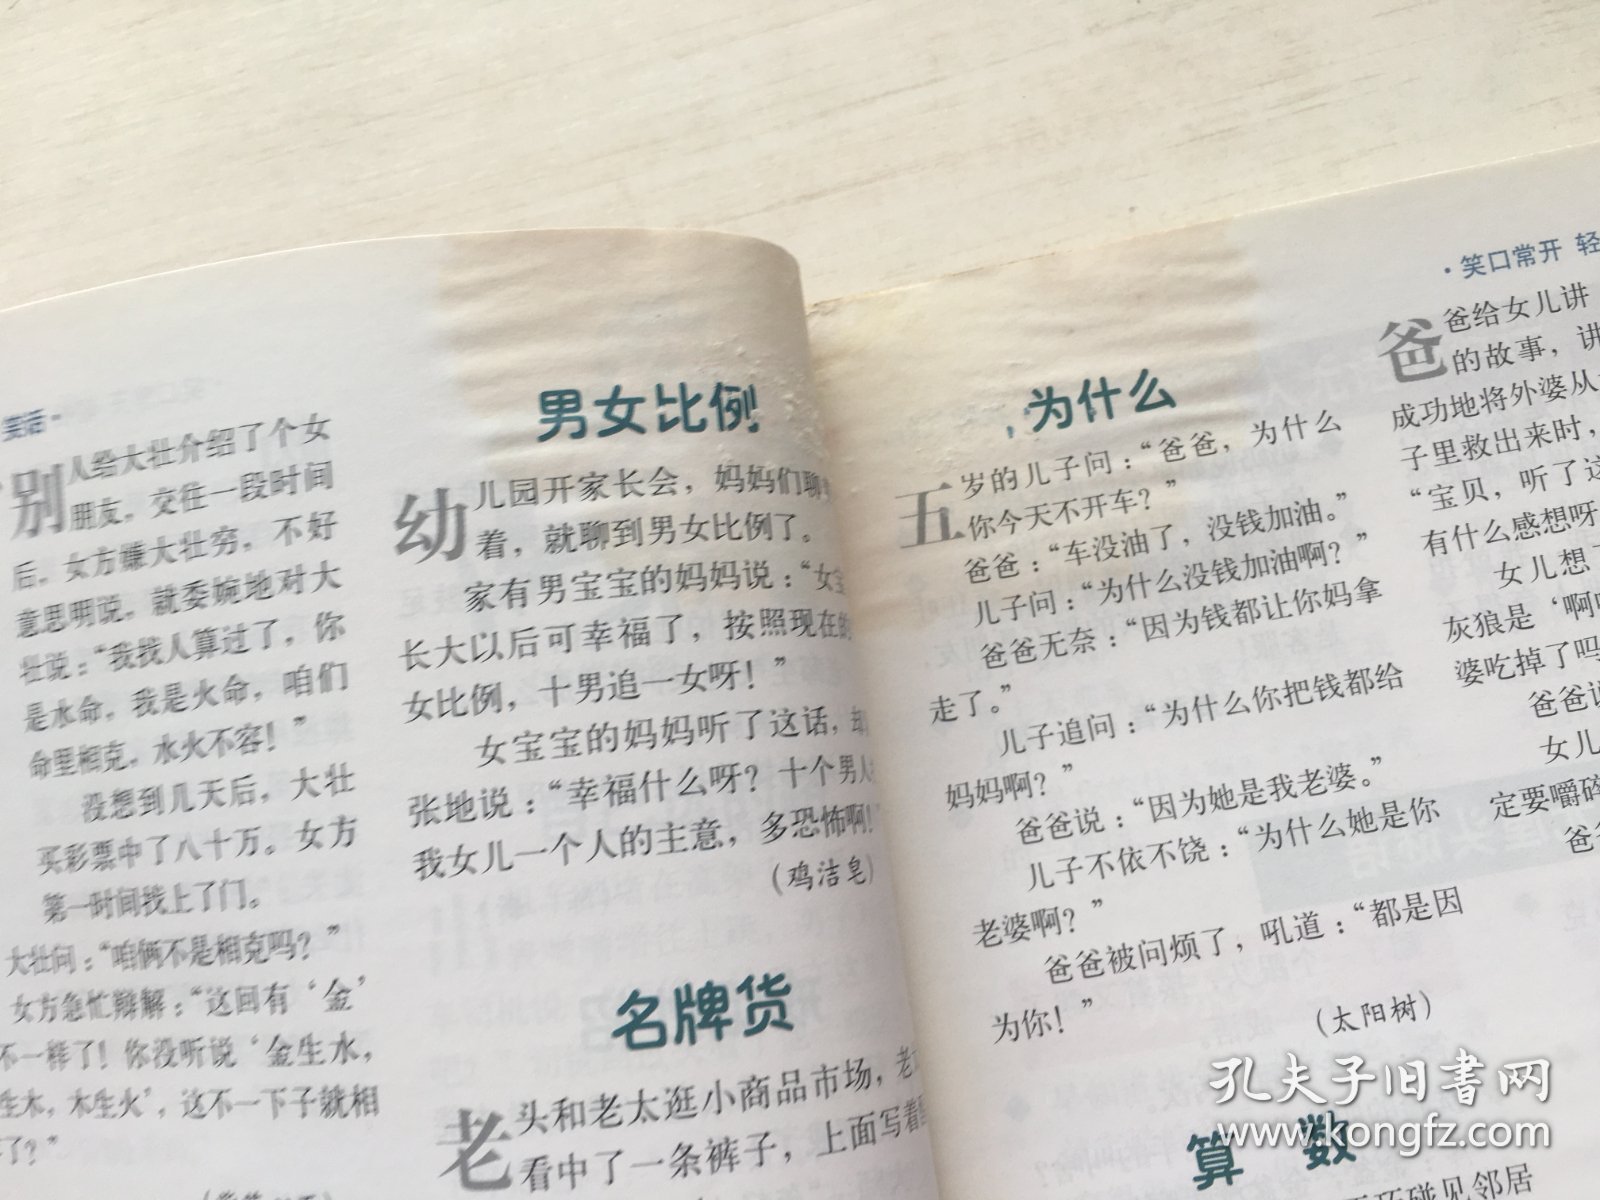 笑话·
别人给大壮介绍了个女
朋友，交往一段时间
后，女方嫌大壮穷，不好
意思明说，就委婉地对大
壮说：“我找人算过了，你
是水命，我是火命，咱们
命里相克，水火不容！”
没想到几天后，大壮
买彩票中了八十万。女方
第一时间找上了门。
大壮问：“咱俩不是相克吗？”
女方急忙辩解：“这回有‘金’
不一样了！你没听说‘金生水，
生木，木生火’，这不一下子就相
了？”
男女比例
幼儿园开家长会，妈妈们聊
着，就聊到男女比例了。
家有男宝宝的妈妈说：“女宝
长大以后可幸福了，按照现在的
女比例，十男追一女呀！”
女宝宝的妈妈听了这话，却
张地说：“幸福什么呀？十个男人
我女儿一个人的主意，多恐怖啊！
（鸡洁皂）
名牌货
老头和老太逛小商品市场，老
看中了一条裤子，上面写着
·笑口常开 轻
为什么
五岁的儿子问：“爸爸，为什么
你今天不开车？”
爸爸：“车没油了，没钱加油。”
儿子问：“为什么没钱加油啊？”
爸爸无奈：“因为钱都让你妈拿
走了。”
儿子追问：“为什么你把钱都给
妈妈啊？”
爸爸说：“因为她是我老婆。”
儿子不依不饶：“为什么她是你
老婆啊？”
爸爸被问烦了，吼道：“都是因
为你！”
（太阳树）
算 数
碰见邻居
爸爸给女儿讲
的故事，讲
成功地将外婆从
子里救出来时，
“宝贝，听了这
有什么感想呀
女儿想
灰狼是‘啊
婆吃掉了吗
爸爸说
女儿
定要嚼碎
爸爸
孔夫子旧书网
www.kongfz.com